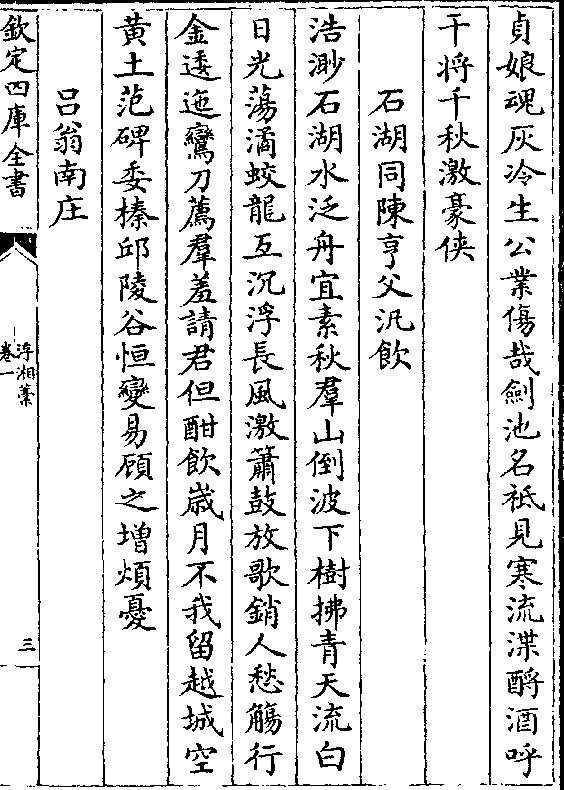 貞娘魂灰冷生公業傷哉劍池名祗見寒流渫酹酒呼
干將千秋激豪俠
石湖同陳亨父汎飲
浩渺石湖水泛舟宜素秋羣山倒波下樹拂青天流白
日光蕩潏蛟龍互沉浮長風激簫鼓放歌銷人愁觴行
金逶迤鸞刀薦羣羞請君但酣飲嵗月不我留越城空
黄土范碑委榛邱陵谷恒變易顧之增煩憂
吕翁南庄
欽定四庫全書
浮湘藁
卷一
三